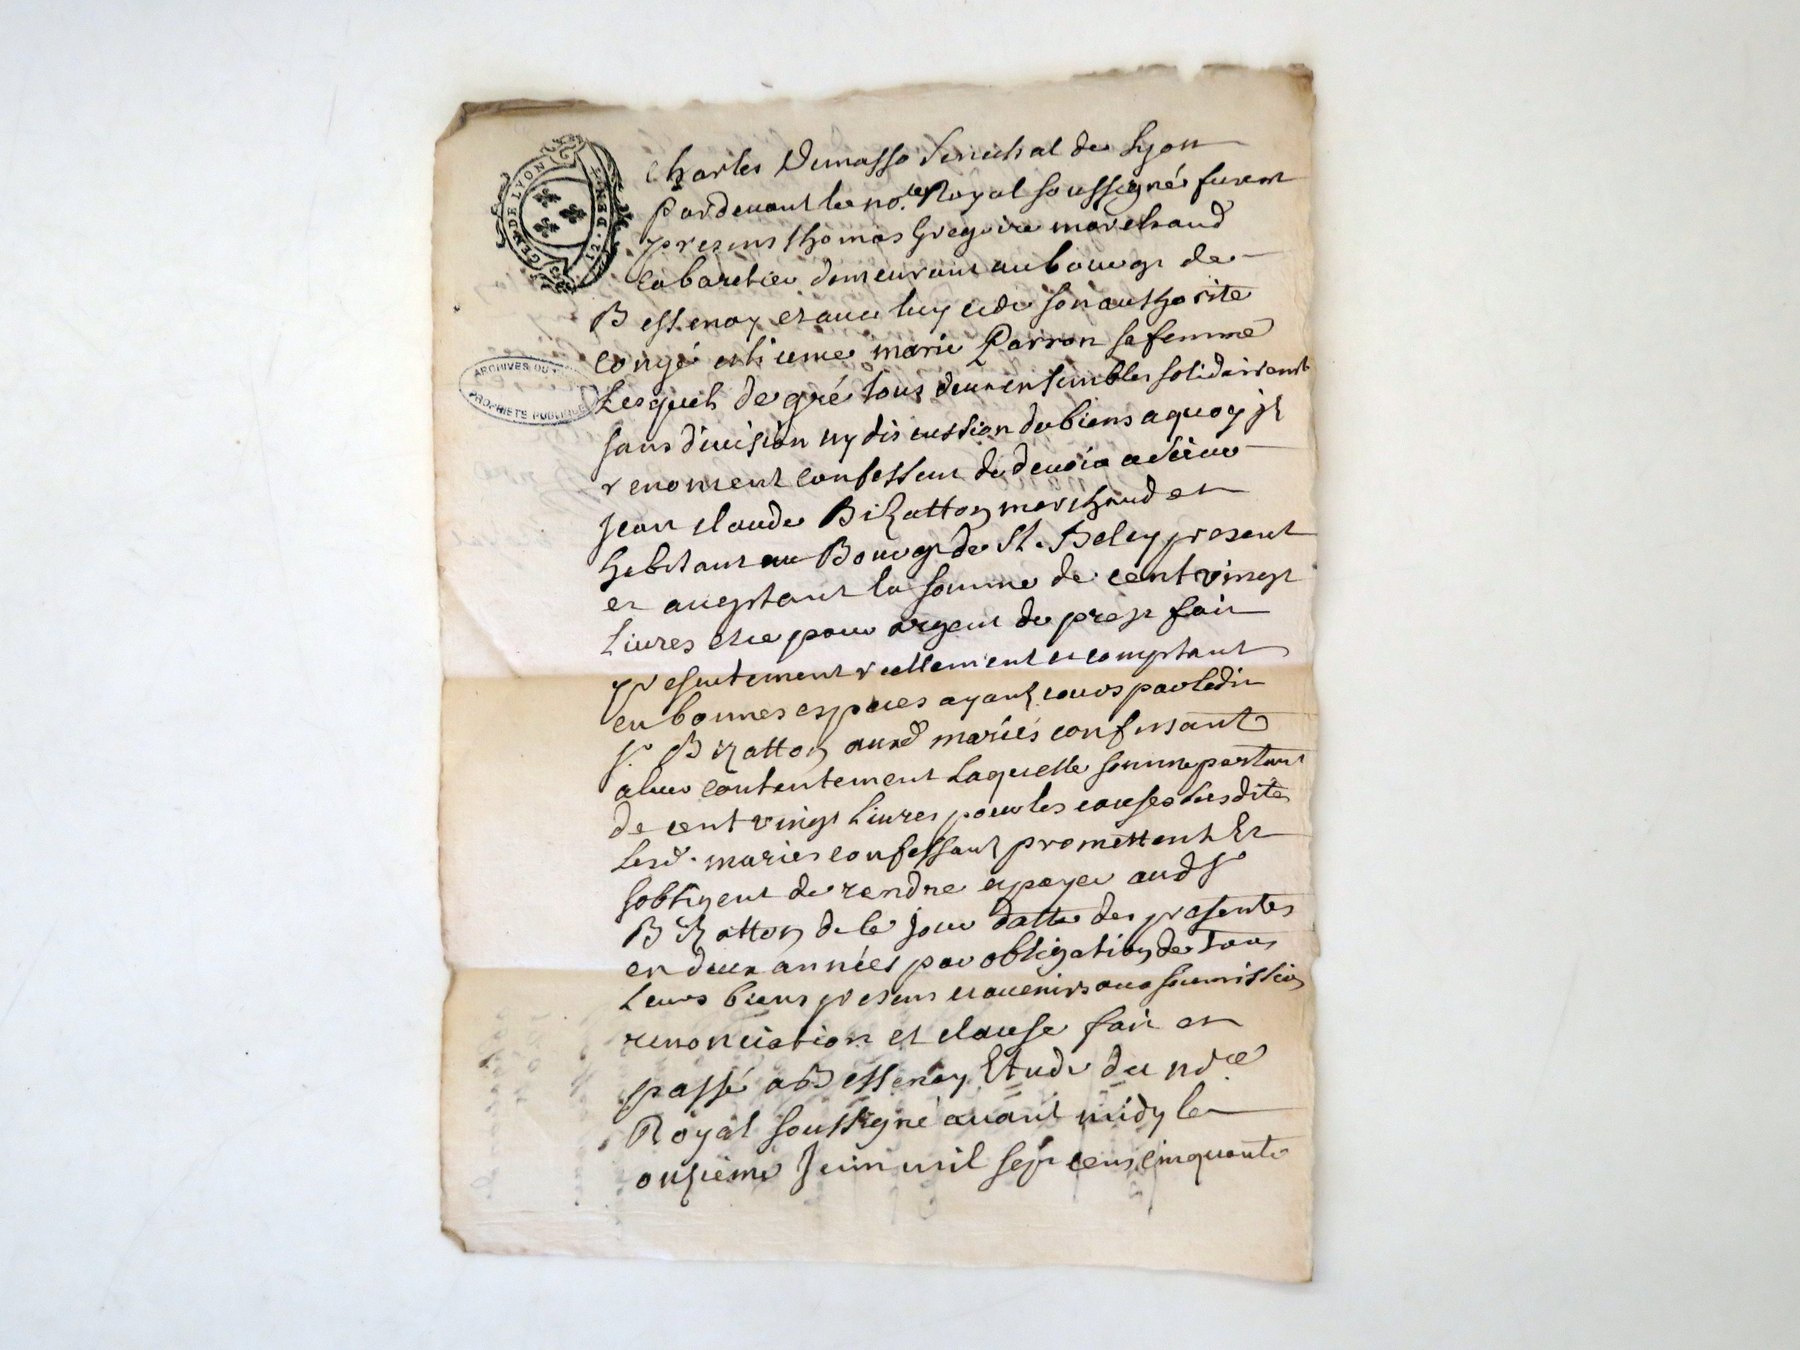 GEN. DE LYON
ARCHIVES DU
PROPRIETE PUBLIQUE
Charles Demasso Senechal de Lyon
Pardevant le no.re Royal soussigné furent
presens thomas Gregoire marchand
Cabaretier demeurant au bourg de
Bessenay et avec luy et de son authorité
congé et licence marie Parron sa femme
Lesquels de gré tous deux ensembles solidairemt
sans division ny discussion de biens a quoy jls
renoncent confessent de devoir a sieur
Jean claude Bizatton marchand et
habitant au Bourg de St. Beley present
et acceptant la somme de cent vingt
Livres et ce pour argent de prest fait
presentement reellement et comptant
en bonnes especes ayant cours par ledit
Sr. Bizatton auxd mariés confessant
a leur contentement Laquelle somme partant
de cent vingt Livres pour les causes susdites
Lesd. mariés confessant promettent Et
sobligent de rendre et payer aud Sr
Bizatton de le jour datte des presentes
en deux années par obligation de Tous
Leurs biens presens et avenirs avec soumission
renonciation et clause fait et
passé a Bessenay Etude du no.re
Royal soussigné avant midy le
onzieme Juin mil sept cens cinquante